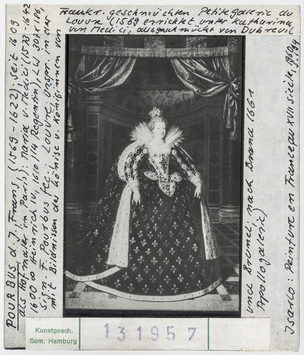 Frankr. geschmückten Petite Galerie du
Louvre (1569 errichtet unter Katharina
von Medici, ausgeschmückt von Dubreuil
und Brunel, nach Brand 1661
Apollogalerie)
POURBUS d. J. Frans (1569-1622), seit 1609
als Hofmaler in Paris): Maria v. Medici (1573-1642
1600 ∞ Heinrich IV, 1610/14 Regentin), LW 307x186,
mit Bildnissen der Könige u. Königinnen
Isarlo: Peinture en France au XVII siècle, 1960
Kunstgesch.
Sem. Hamburg
131957